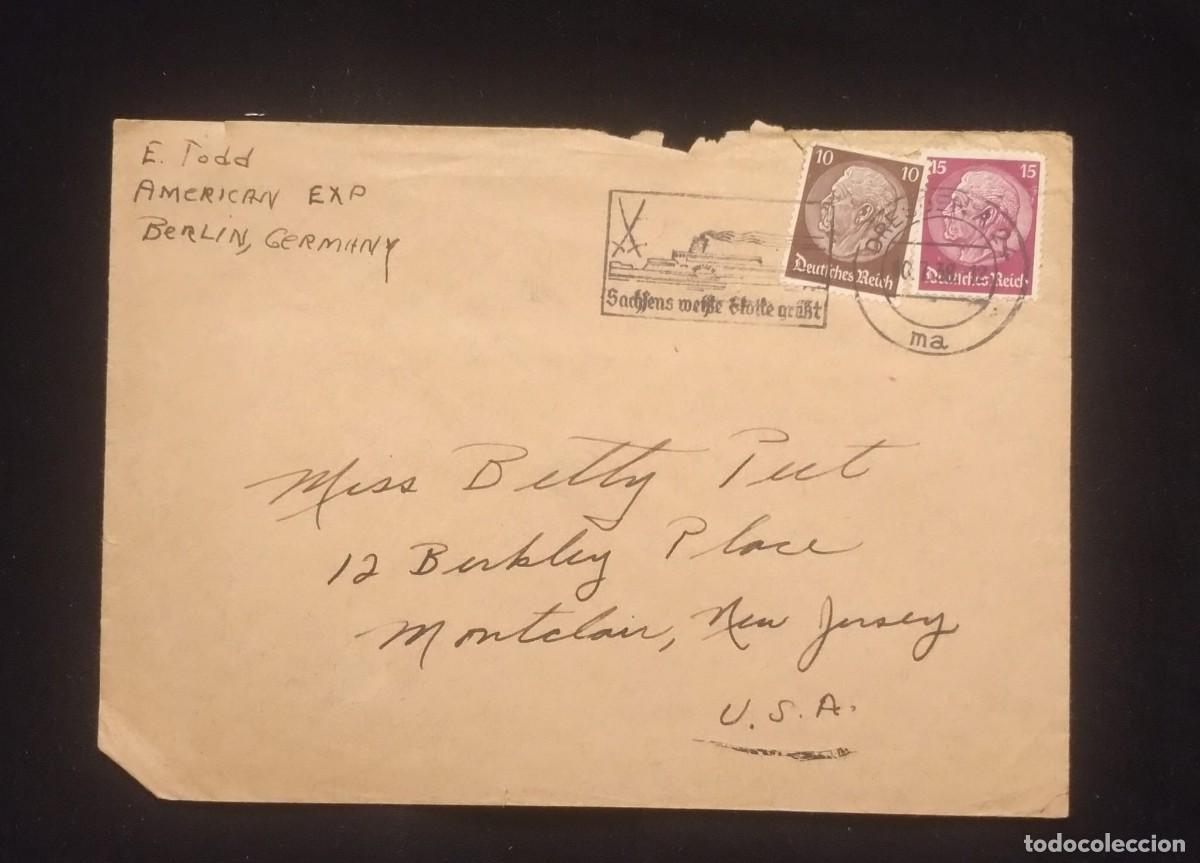 E. Todd
AMERICAN EXP
BERLIN, GERMANY
10 10
Deutsches Reich
15 15
Deutsches Reich
Sachsens weiße Flotte grüßt
DRESDEN A 24
ma
Miss Betty Peet
12 Berkley Place
Montclair, New Jersey
U.S.A.
todocoleccion